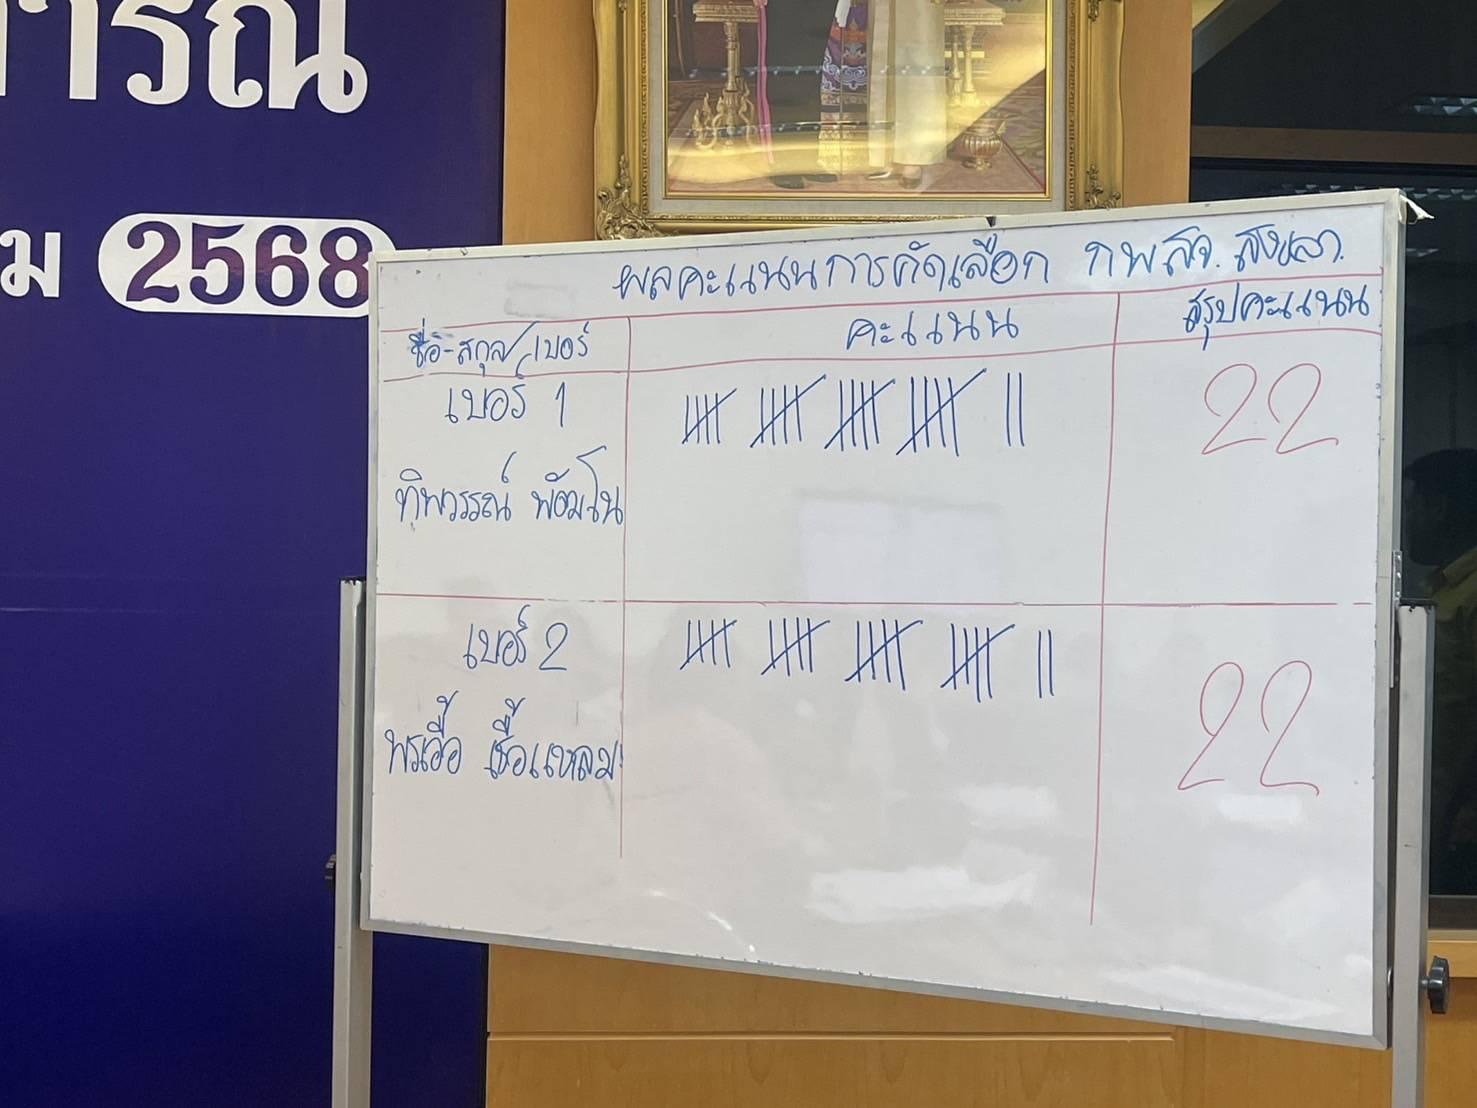 ารณ์
ม 2568
ผลคะแนนการคัดเลือก กพสจ. สงขลา.
ชื่อ-สกุล/เบอร์
คะแนน
สรุปคะแนน
เบอร์ 1
22
ทิพวรรณ์ พ้อมโน
เบอร์ 2
22
พรเอื้อ เชื้อแหลม